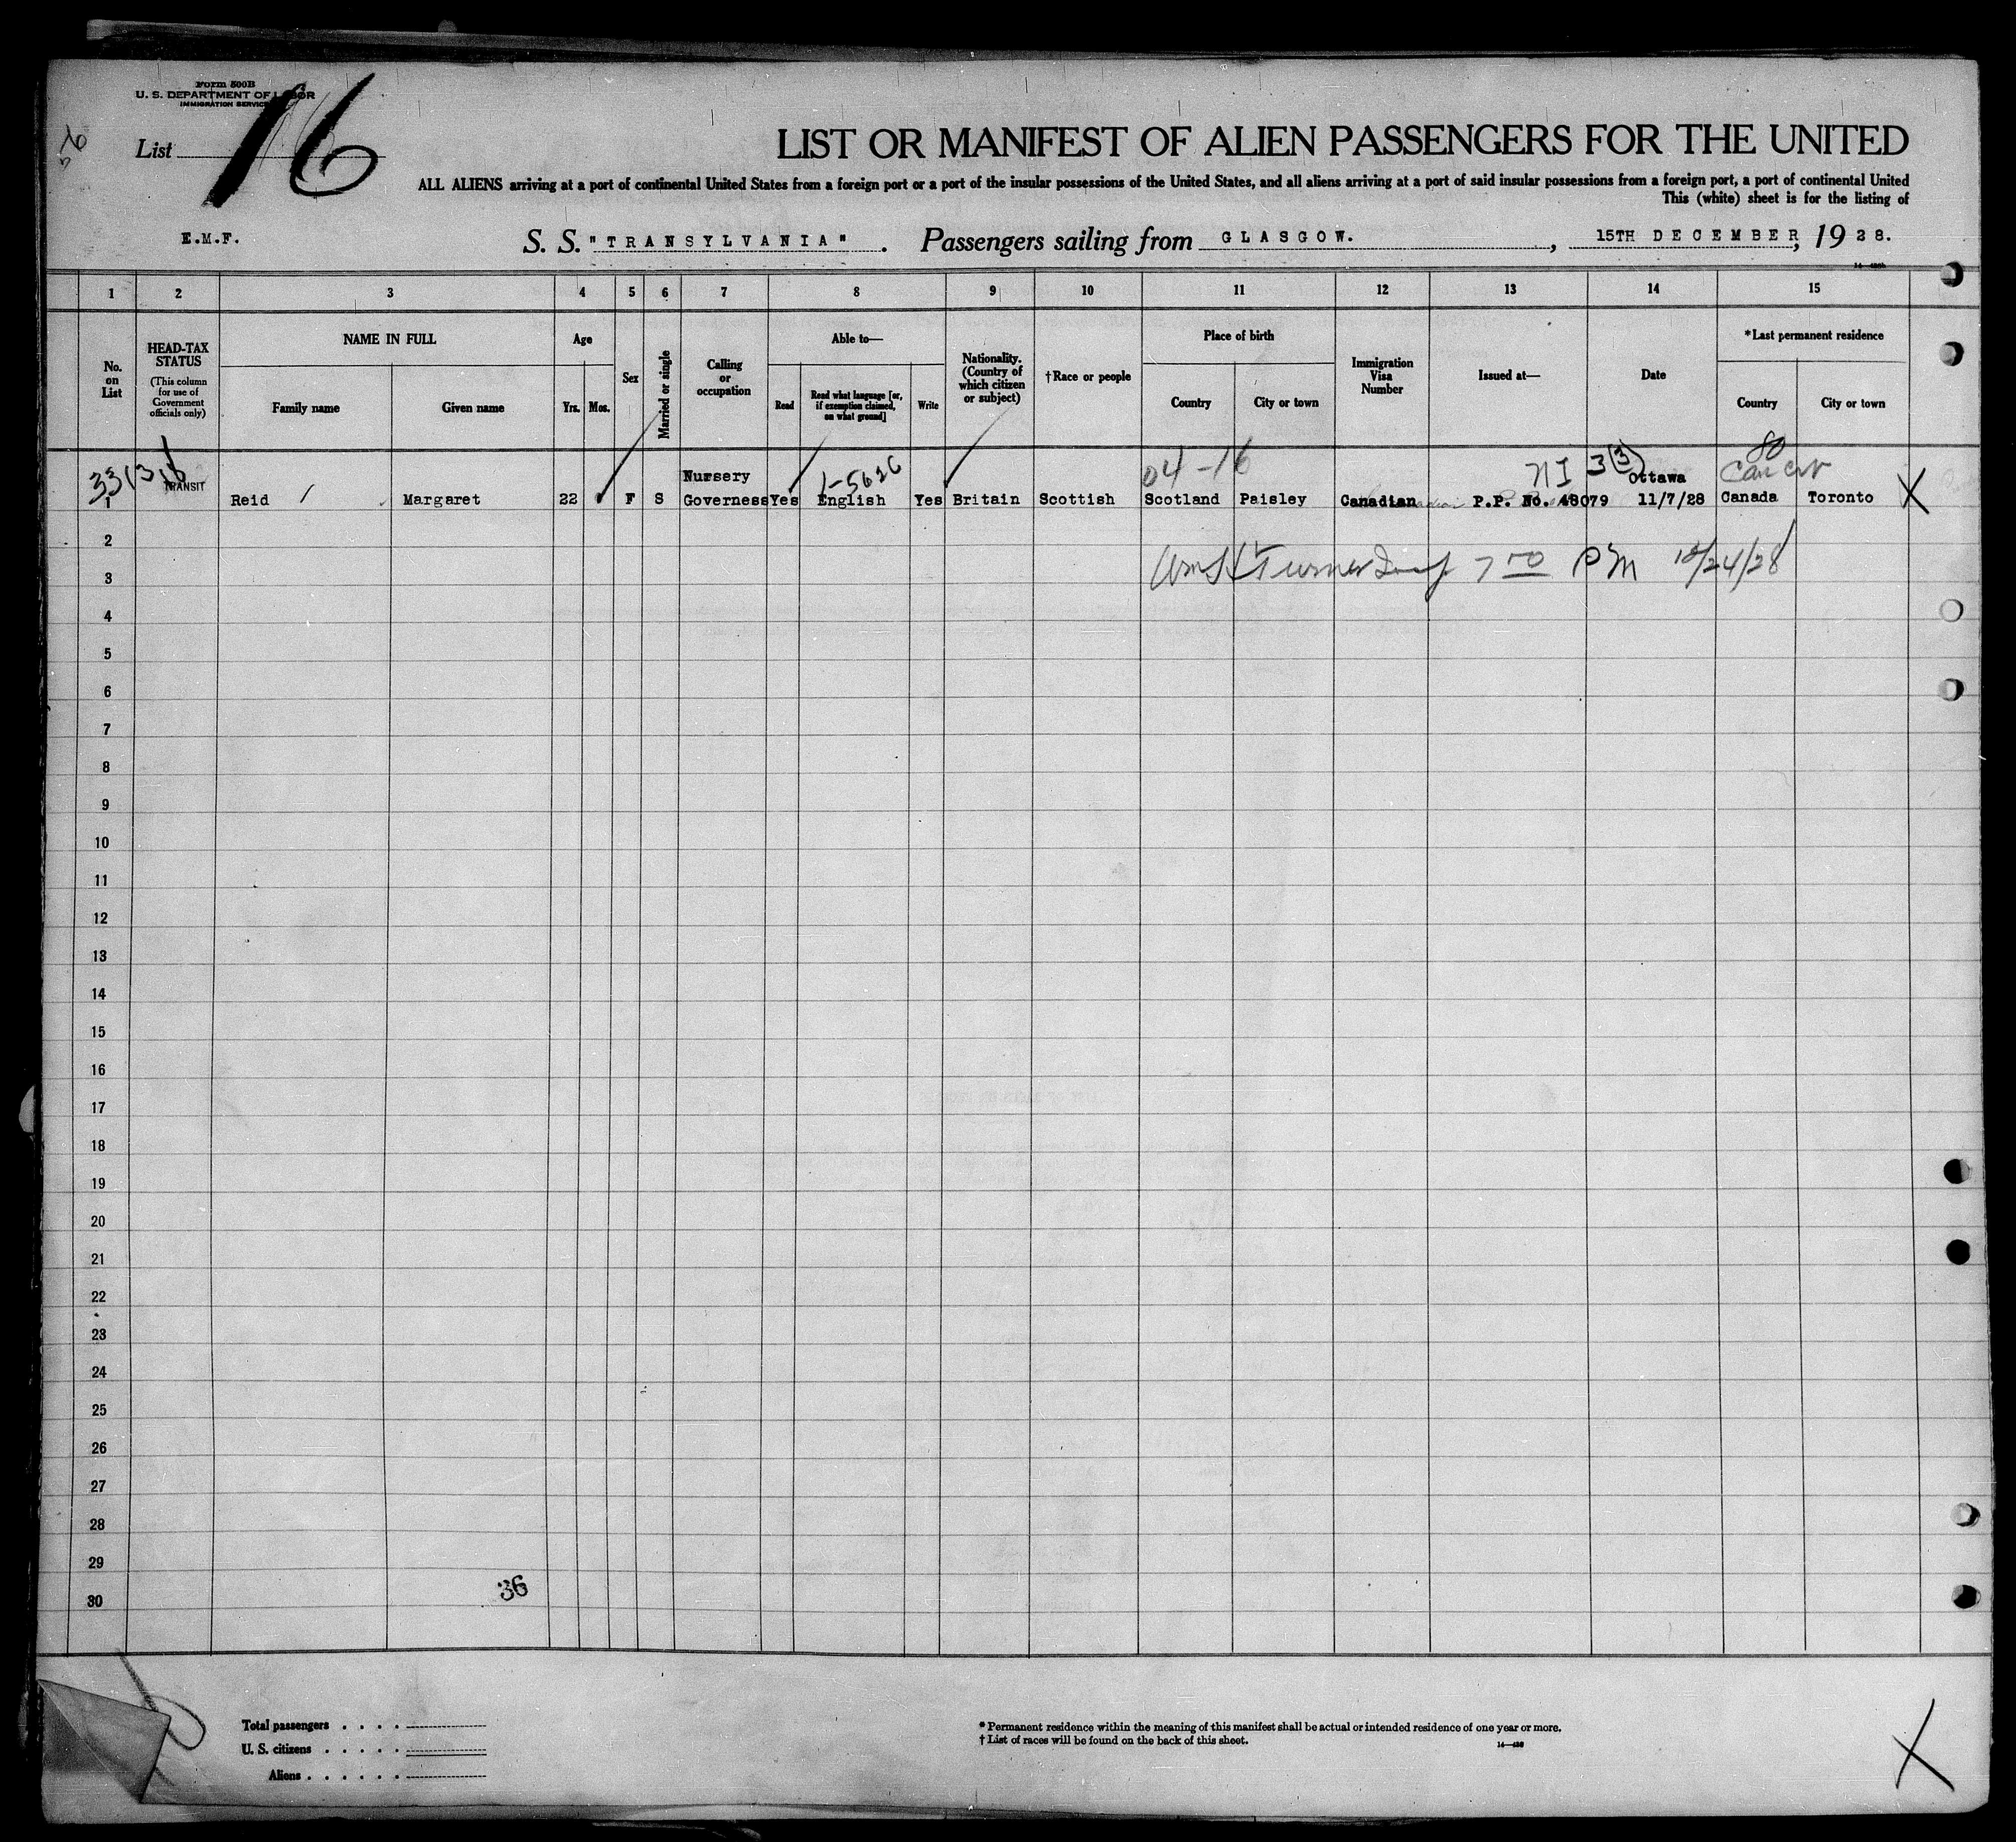 Form 500B
U. S. DEPARTMENT OF LABOR
IMMIGRATION SERVICE
List 16
LIST OR MANIFEST OF ALIEN PASSENGERS FOR THE UNITED
ALL ALIENS arriving at a port of continental United States from a foreign port or a port of the insular possessions of the United States, and all aliens arriving at a port of said insular possessions from a foreign port, a port of continental United
This (white) sheet is for the listing of
E.M.F.
S. S. "TRANSYLVANIA". Passengers sailing from GLASGOW., 15TH DECEMBER, 1928.
1 2 3 4 5 6 7 8 9 10 11 12 13 14 15
No. on List
HEAD-TAX STATUS
(This column for use of Government officials only)
NAME IN FULL
Family name
Given name
Age
Yrs. Mos.
Sex
Married or single
Calling or occupation
Able to—
Read
Read what language [or, if exemption claimed, on what ground]
Write
Nationality. (Country of which citizen or subject)
†Race or people
Place of birth
Country
City or town
Immigration Visa Number
Issued at—
Date
*Last permanent residence
Country
City or town
04-16
80
NI 3(3)
1-5626
TRANSIT
Nursery
Ottawa
1 Reid Margaret 22 F S Governess Yes English Yes Britain Scottish Scotland Paisley Canadian P.P. No. 48079 11/7/28 Canada Toronto X
2
Turner 7 00 PM 12/24/28
3
4
5
6
7
8
9
10
11
12
13
14
15
16
17
18
19
20
21
22
23
24
25
26
27
28
29
36
30
Total passengers . . . .
U. S. citizens . . . . .
Aliens . . . . . .
* Permanent residence within the meaning of this manifest shall be actual or intended residence of one year or more.
† List of races will be found on the back of this sheet.
X